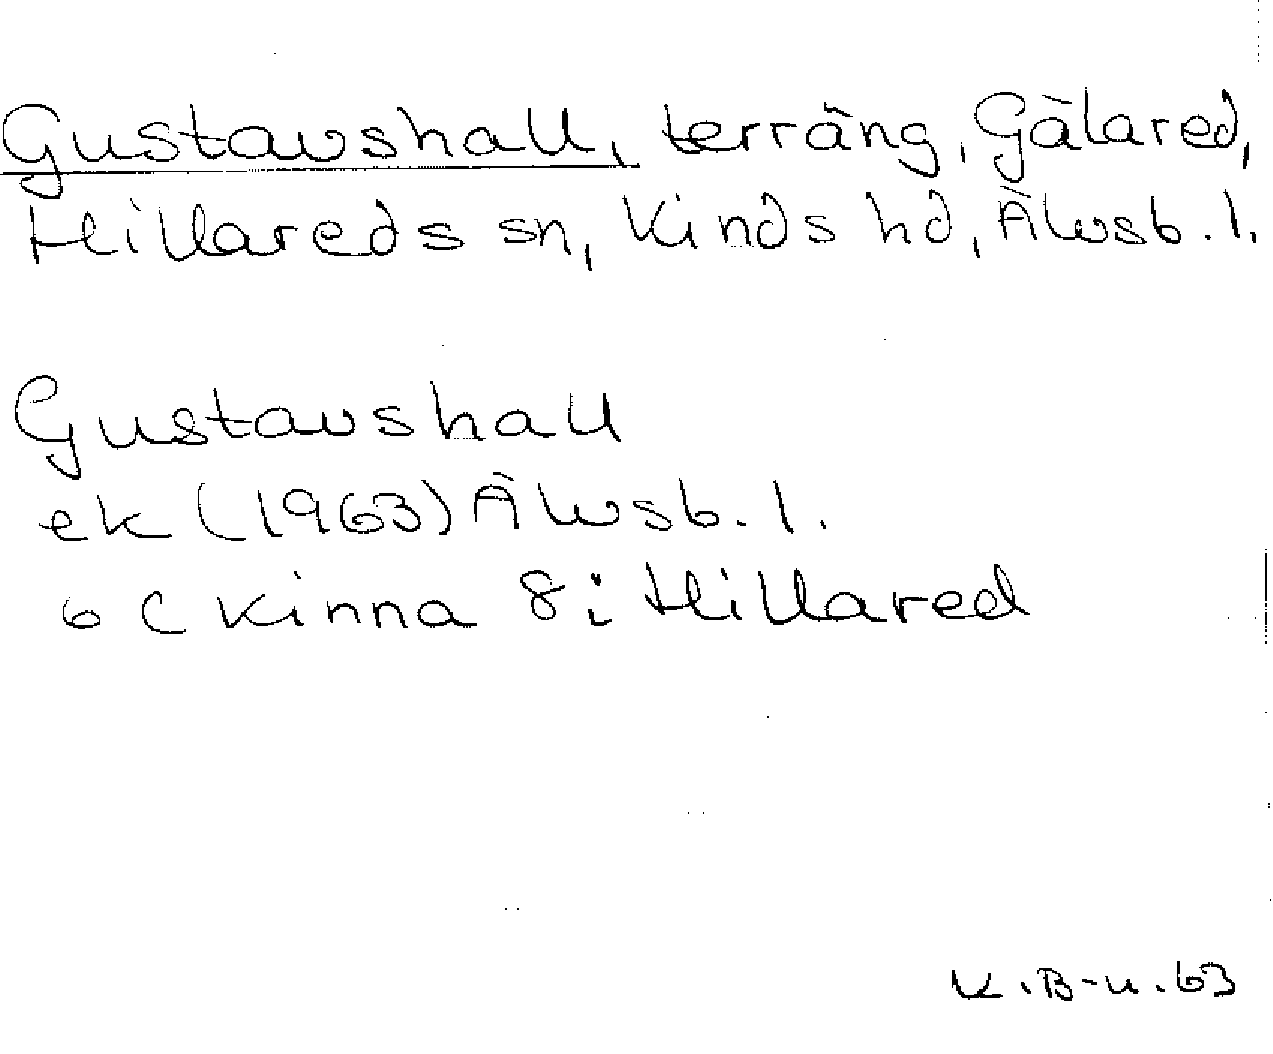 Gustavshall, terräng, Gälared,
Hillareds sn, Kinds hd, Älvsb. l.
Gustavshall
ek (1963) Älvsb. l.
6 C Kinna 8i Hillared
K. B-n. 63